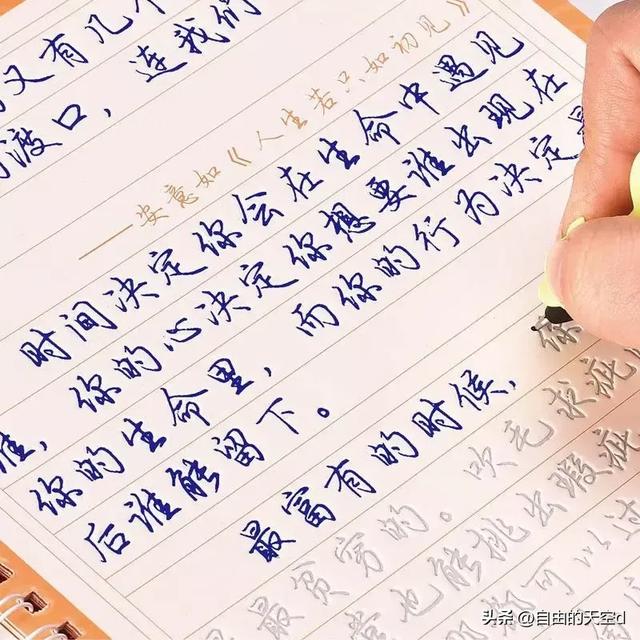 又有几个
渡口，连我们
——安意如《人生若只如初见》
时间决定你会在生命中遇见
谁，你的心决定你想要谁出现在
你的生命里，而你的行为决定最
后谁能留下。
最富有的时候，你
最贫穷的。吹毛求疵
也能挑出瑕疵
都可以过
头条 @自由的天空d